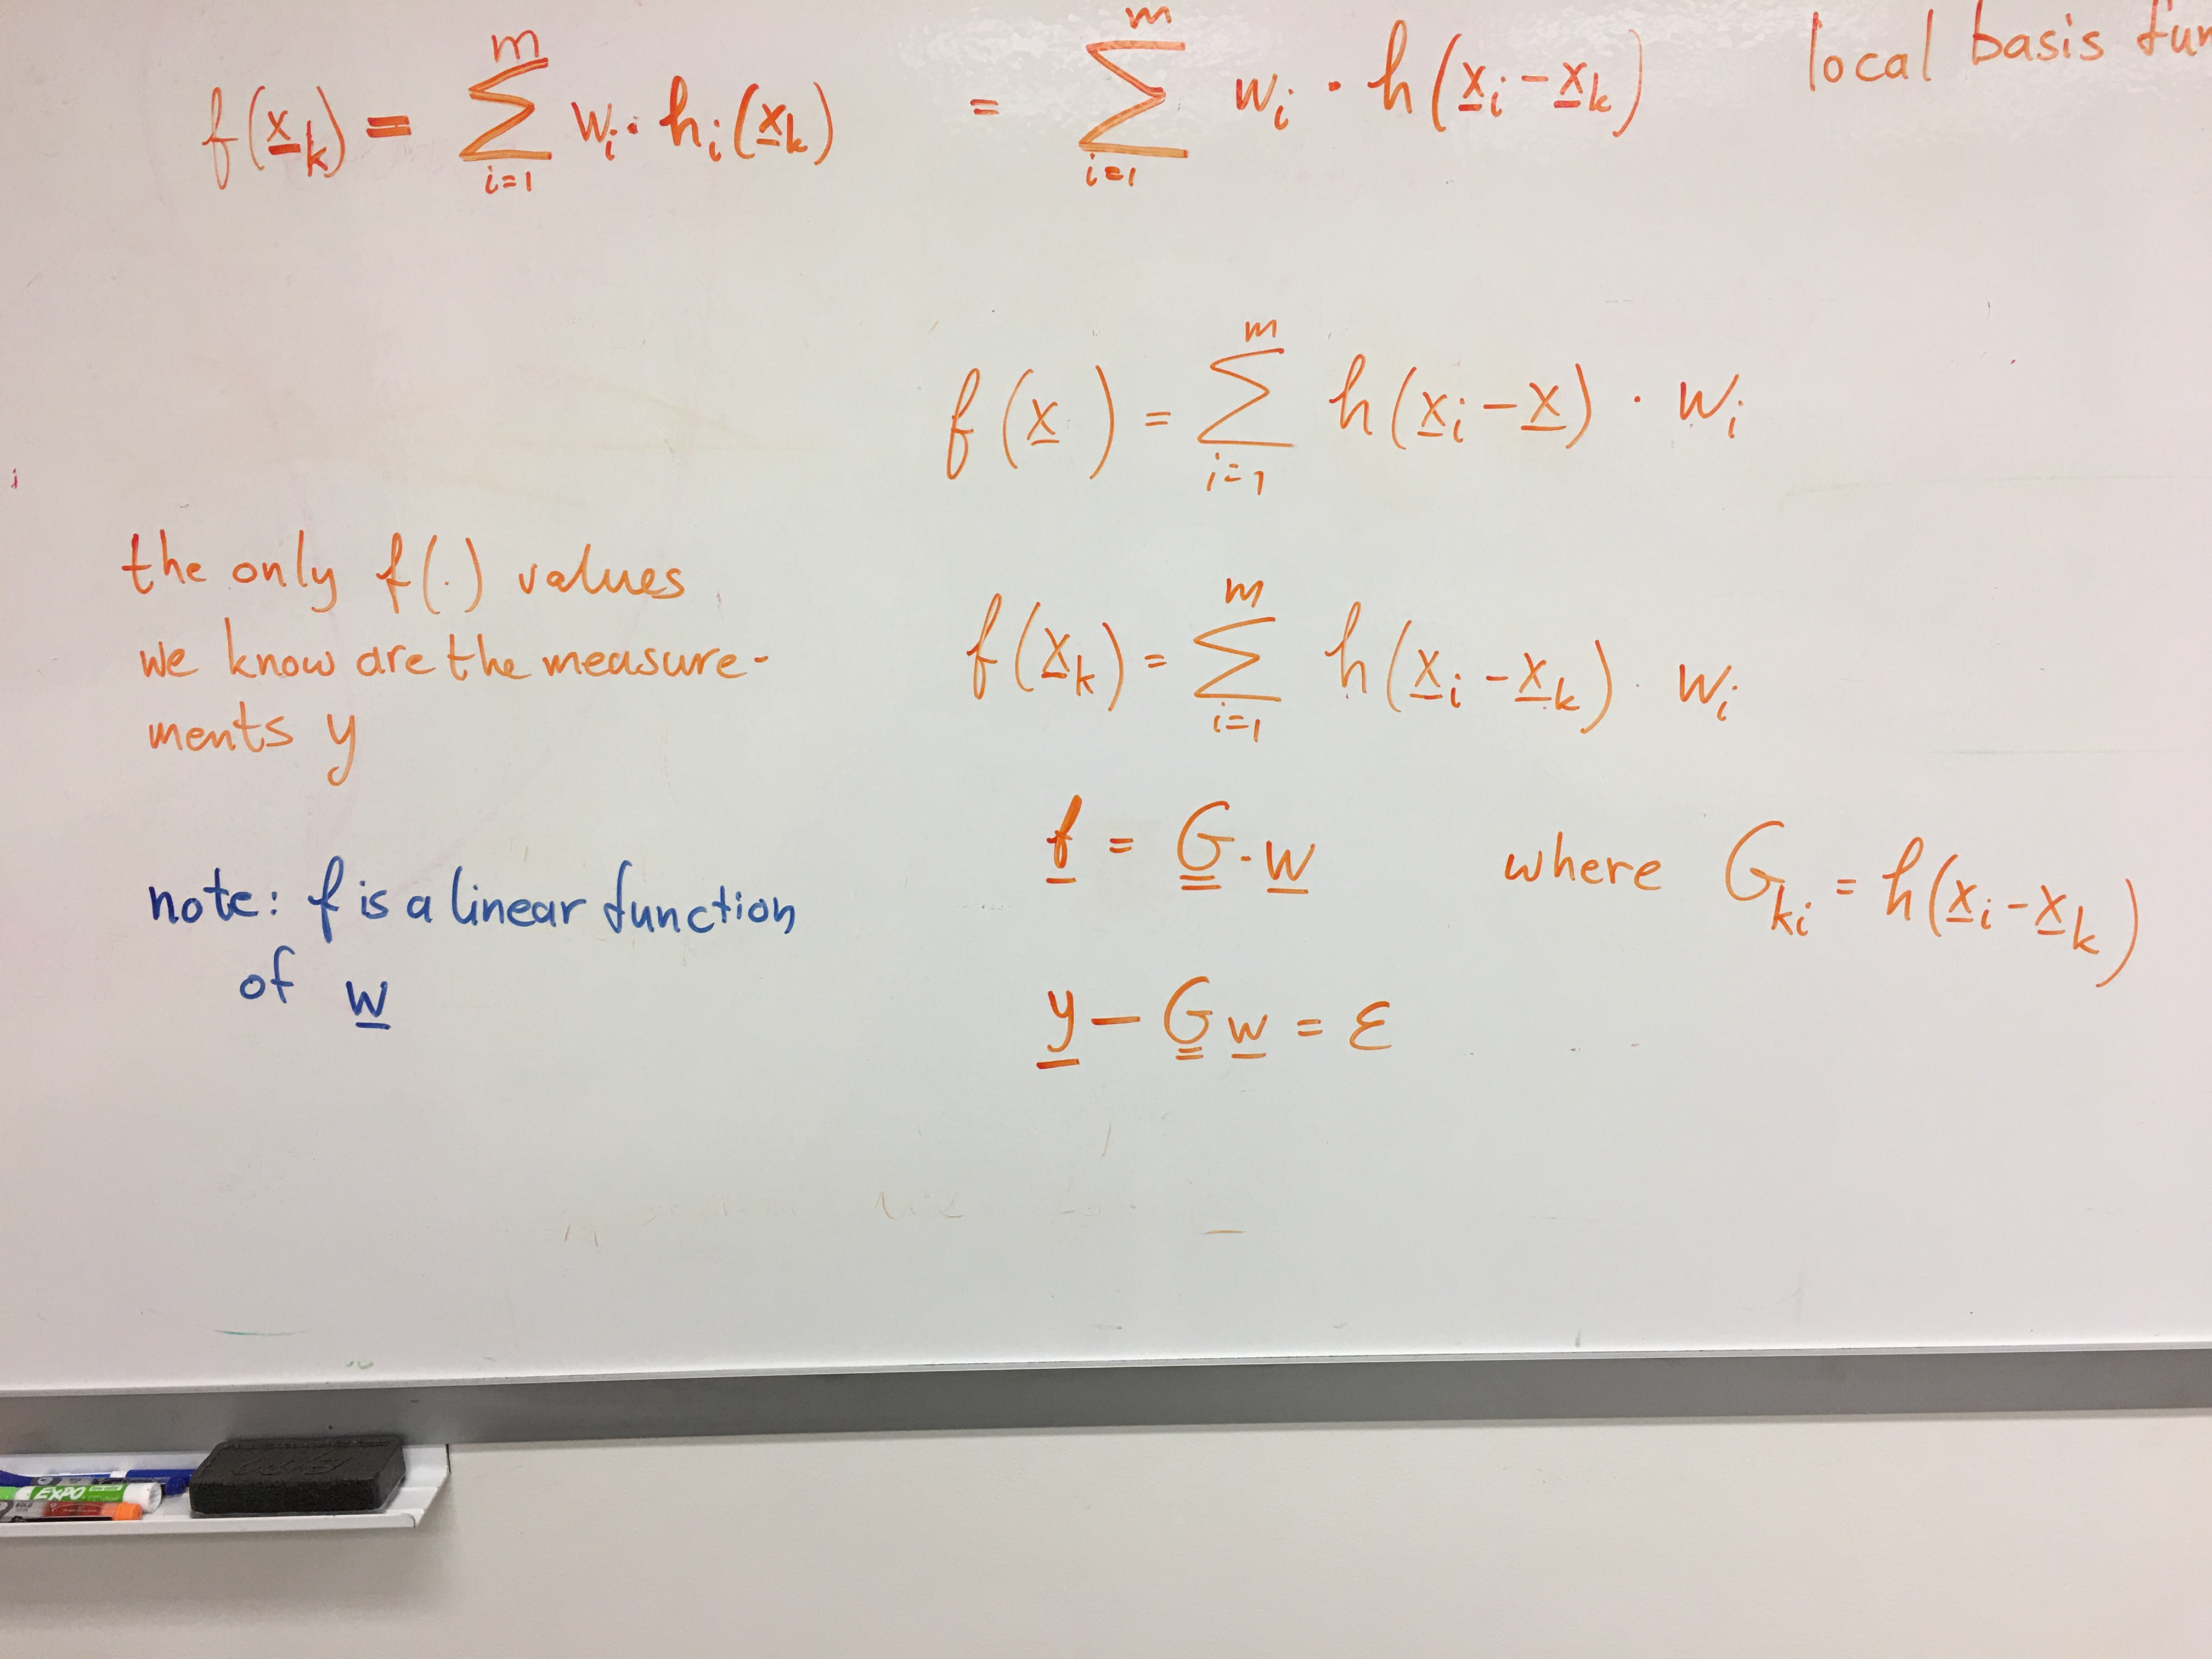 f(x̲ₖ) = ∑ᵢ₌₁ᵐ wᵢ · hᵢ(x̲ₖ) = ∑ᵢ₌₁ᵐ wᵢ · h(x̲ᵢ − x̲ₖ) local basis fun
f(x̲) = ∑ᵢ₌₁ᵐ h(x̲ᵢ − x̲) · wᵢ
the only f(.) values
we know are the measure-
ments y
f(x̲ₖ) = ∑ᵢ₌₁ᵐ h(x̲ᵢ − x̲ₖ) · wᵢ
f̲ = G̳ · w̲ where Gₖᵢ = h(x̲ᵢ − x̲ₖ)
note: f is a linear function
of w̲
y̲ − G̳ w̲ = ε
EXPO